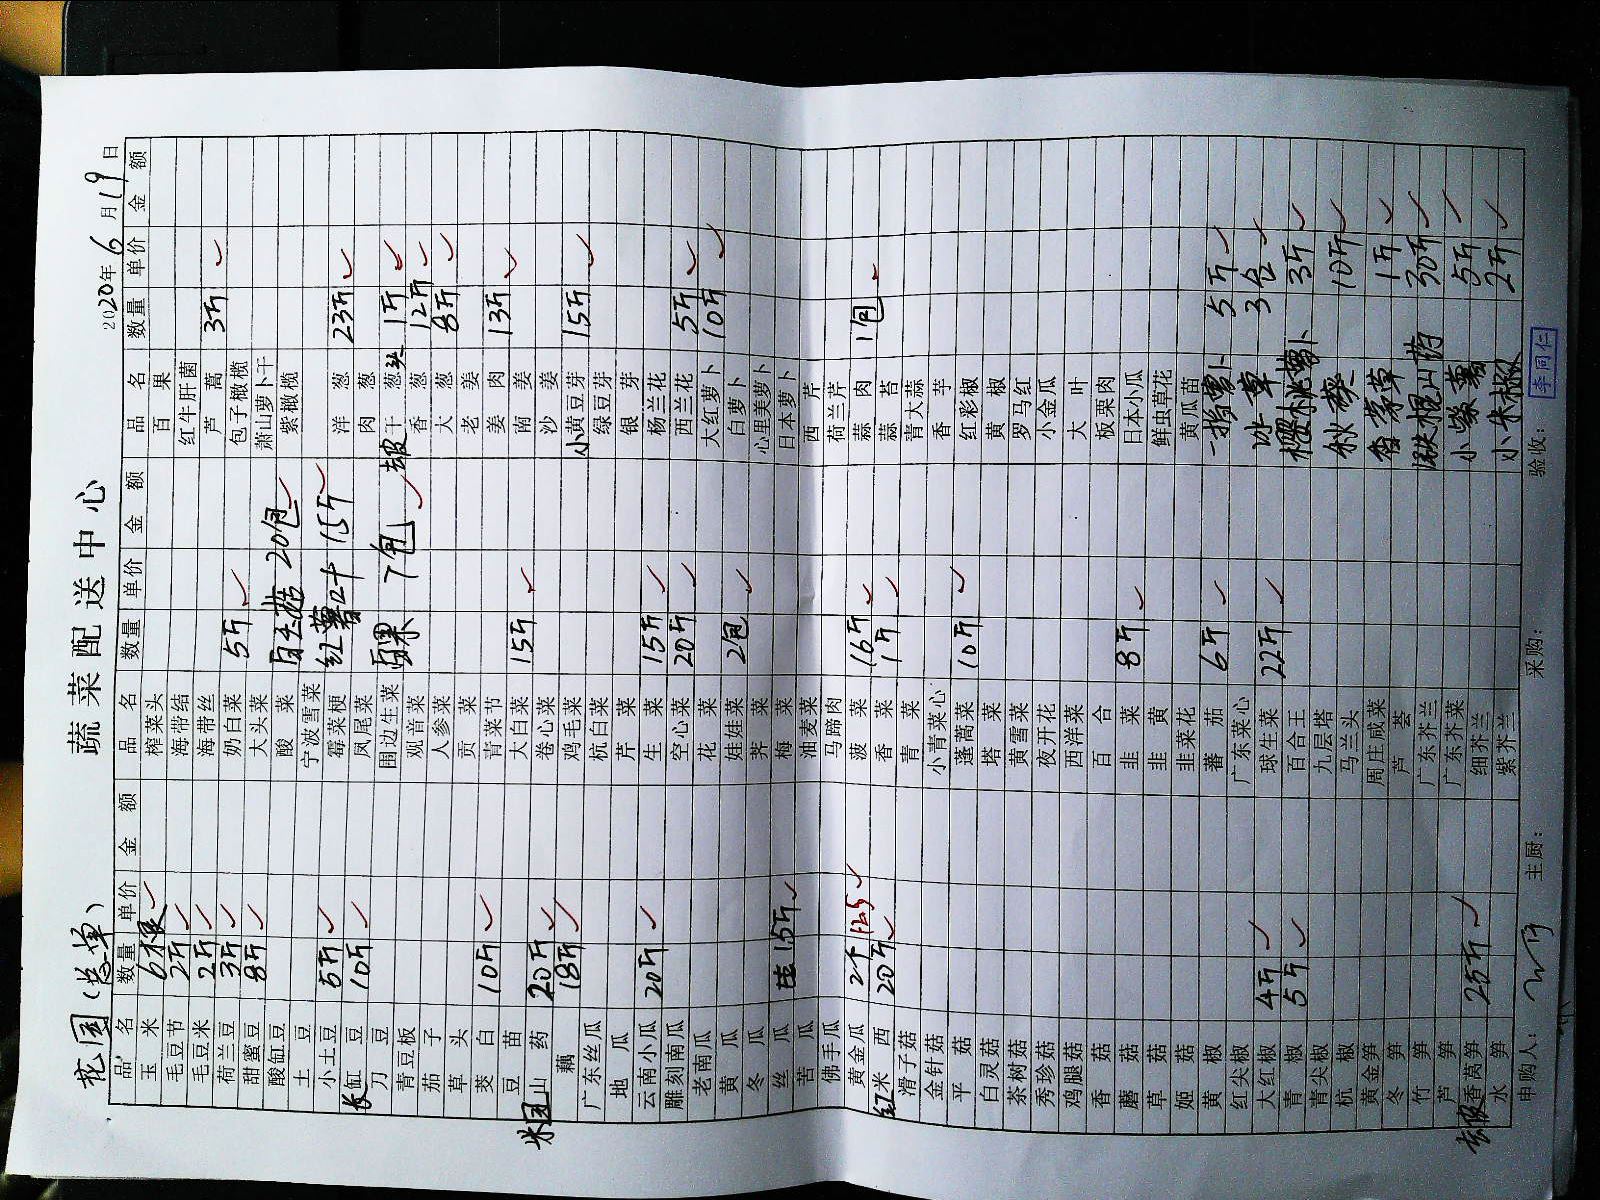 蔬菜配送中心
花园(总单)
2020年6月19日
品名 数量 单价 金额
玉米 6根
毛豆节 2斤
毛豆米 2斤
荷兰豆 3斤
甜蜜豆 8斤
酸缸豆
土豆
小土豆 5斤
长缸豆 10斤
刀豆
青豆板
茄子
草头
茭白 10斤
豆苗
山药 20斤
藕 18斤
广东丝瓜
地瓜
云南小瓜 20斤
雕刻南瓜
老南瓜
黄瓜
冬瓜
丝瓜 15斤
苦瓜
佛手瓜
黄金瓜 2个
红米西 20斤
滑子菇
金针菇
平菇
白灵菇
茶树菇
秀珍菇
鸡腿菇
香菇
蘑菇
草菇
姬菇
黄椒
红尖椒
大红椒 4斤
青椒 5斤
青尖椒
杭椒
黄金笋
冬笋
竹笋
芦笋
去皮香莴笋 25斤
水笋
品名 数量 单价 金额
榨菜头
海带结
海带丝
奶白菜 5斤
大头菜
酸菜 白玉菇 20包
宁波雪菜
霉菜梗 红薯叶 15斤
凤尾菜
围边生菜 白果 7包
观音菜
人参菜
贡菜
青菜节
大白菜 15斤
卷心菜
鸡毛菜
杭白菜
芹菜
生菜 15斤
空心菜 20斤
花菜
娃娃菜 2包
荠菜
梅菜
油麦菜
马蹄肉
菠菜 16斤
香菜 1斤
青菜
小青菜心
蓬蒿菜 10斤
塔菜
黄雪菜
夜开花
西洋菜
百合
韭菜 8斤
韭黄
韭菜花
蕃茄 6斤
广东菜心
球生菜 22斤
百合王
九层塔
马兰头
周庄咸菜
芦荟
广东芥兰
广东芥菜
细芥兰
紫芥兰
品名 数量 单价 金额
百果
红牛肝菌
芦蒿 3斤
包子橄榄
萧山萝卜干
紫橄榄
洋葱 23斤
肉葱
干葱头 1斤
香葱 12斤
大葱 8斤
老姜
姜肉 13斤
南姜
沙姜
小黄豆芽 15斤
绿豆芽
银芽
杨兰花
西兰花 5斤
大红萝卜 10斤
白萝卜
心里美萝卜
日本萝卜
西芹
荷兰芹
蒜肉 1包
蒜苔
青大蒜
香芋
红彩椒
黄椒
罗马红
小金瓜
大叶
板栗肉
日本小瓜
鲜虫草花
黄瓜苗
手指萝卜 5斤
冰草 3盒
樱桃萝卜 3斤
秋葵 10斤
香茅草 1斤
铁棍山药 30斤
小紫薯 5斤
小米椒 2斤
申购人:
主厨:
采购:
验收: 李同仁